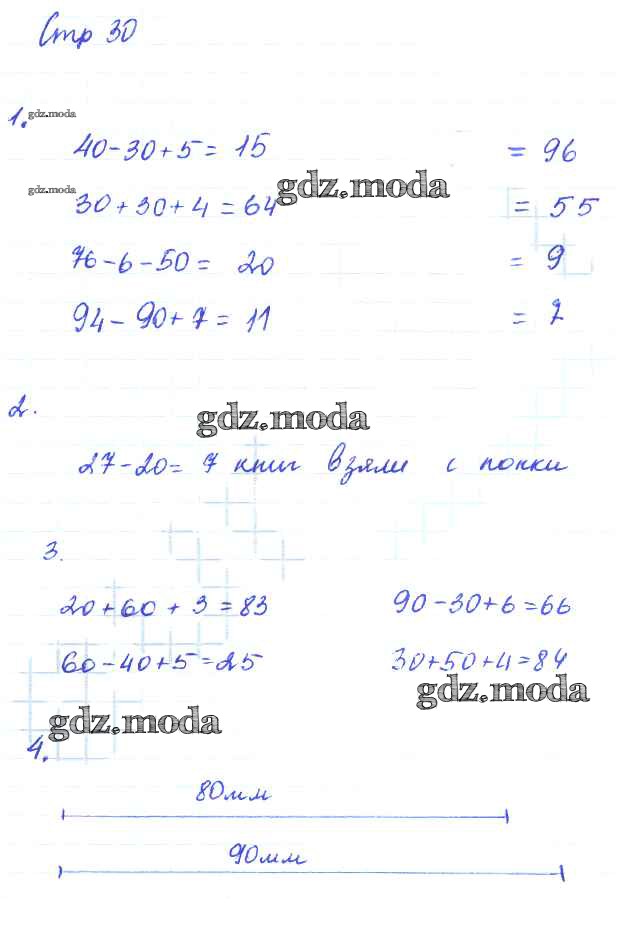 Стр 30
1.
gdz.moda
40-30+5= 15 = 96
gdz.moda
gdz.moda
30+30+4=64 = 55
76-6-50= 20 = 9
94-90+7= 11 = 7
2.
gdz.moda
27-20= 7 книг взяли с полки
3.
20+60+3=83 90-30+6=66
60-40+5=25 30+50+4=84
gdz.moda
gdz.moda
4.
80мм
90мм